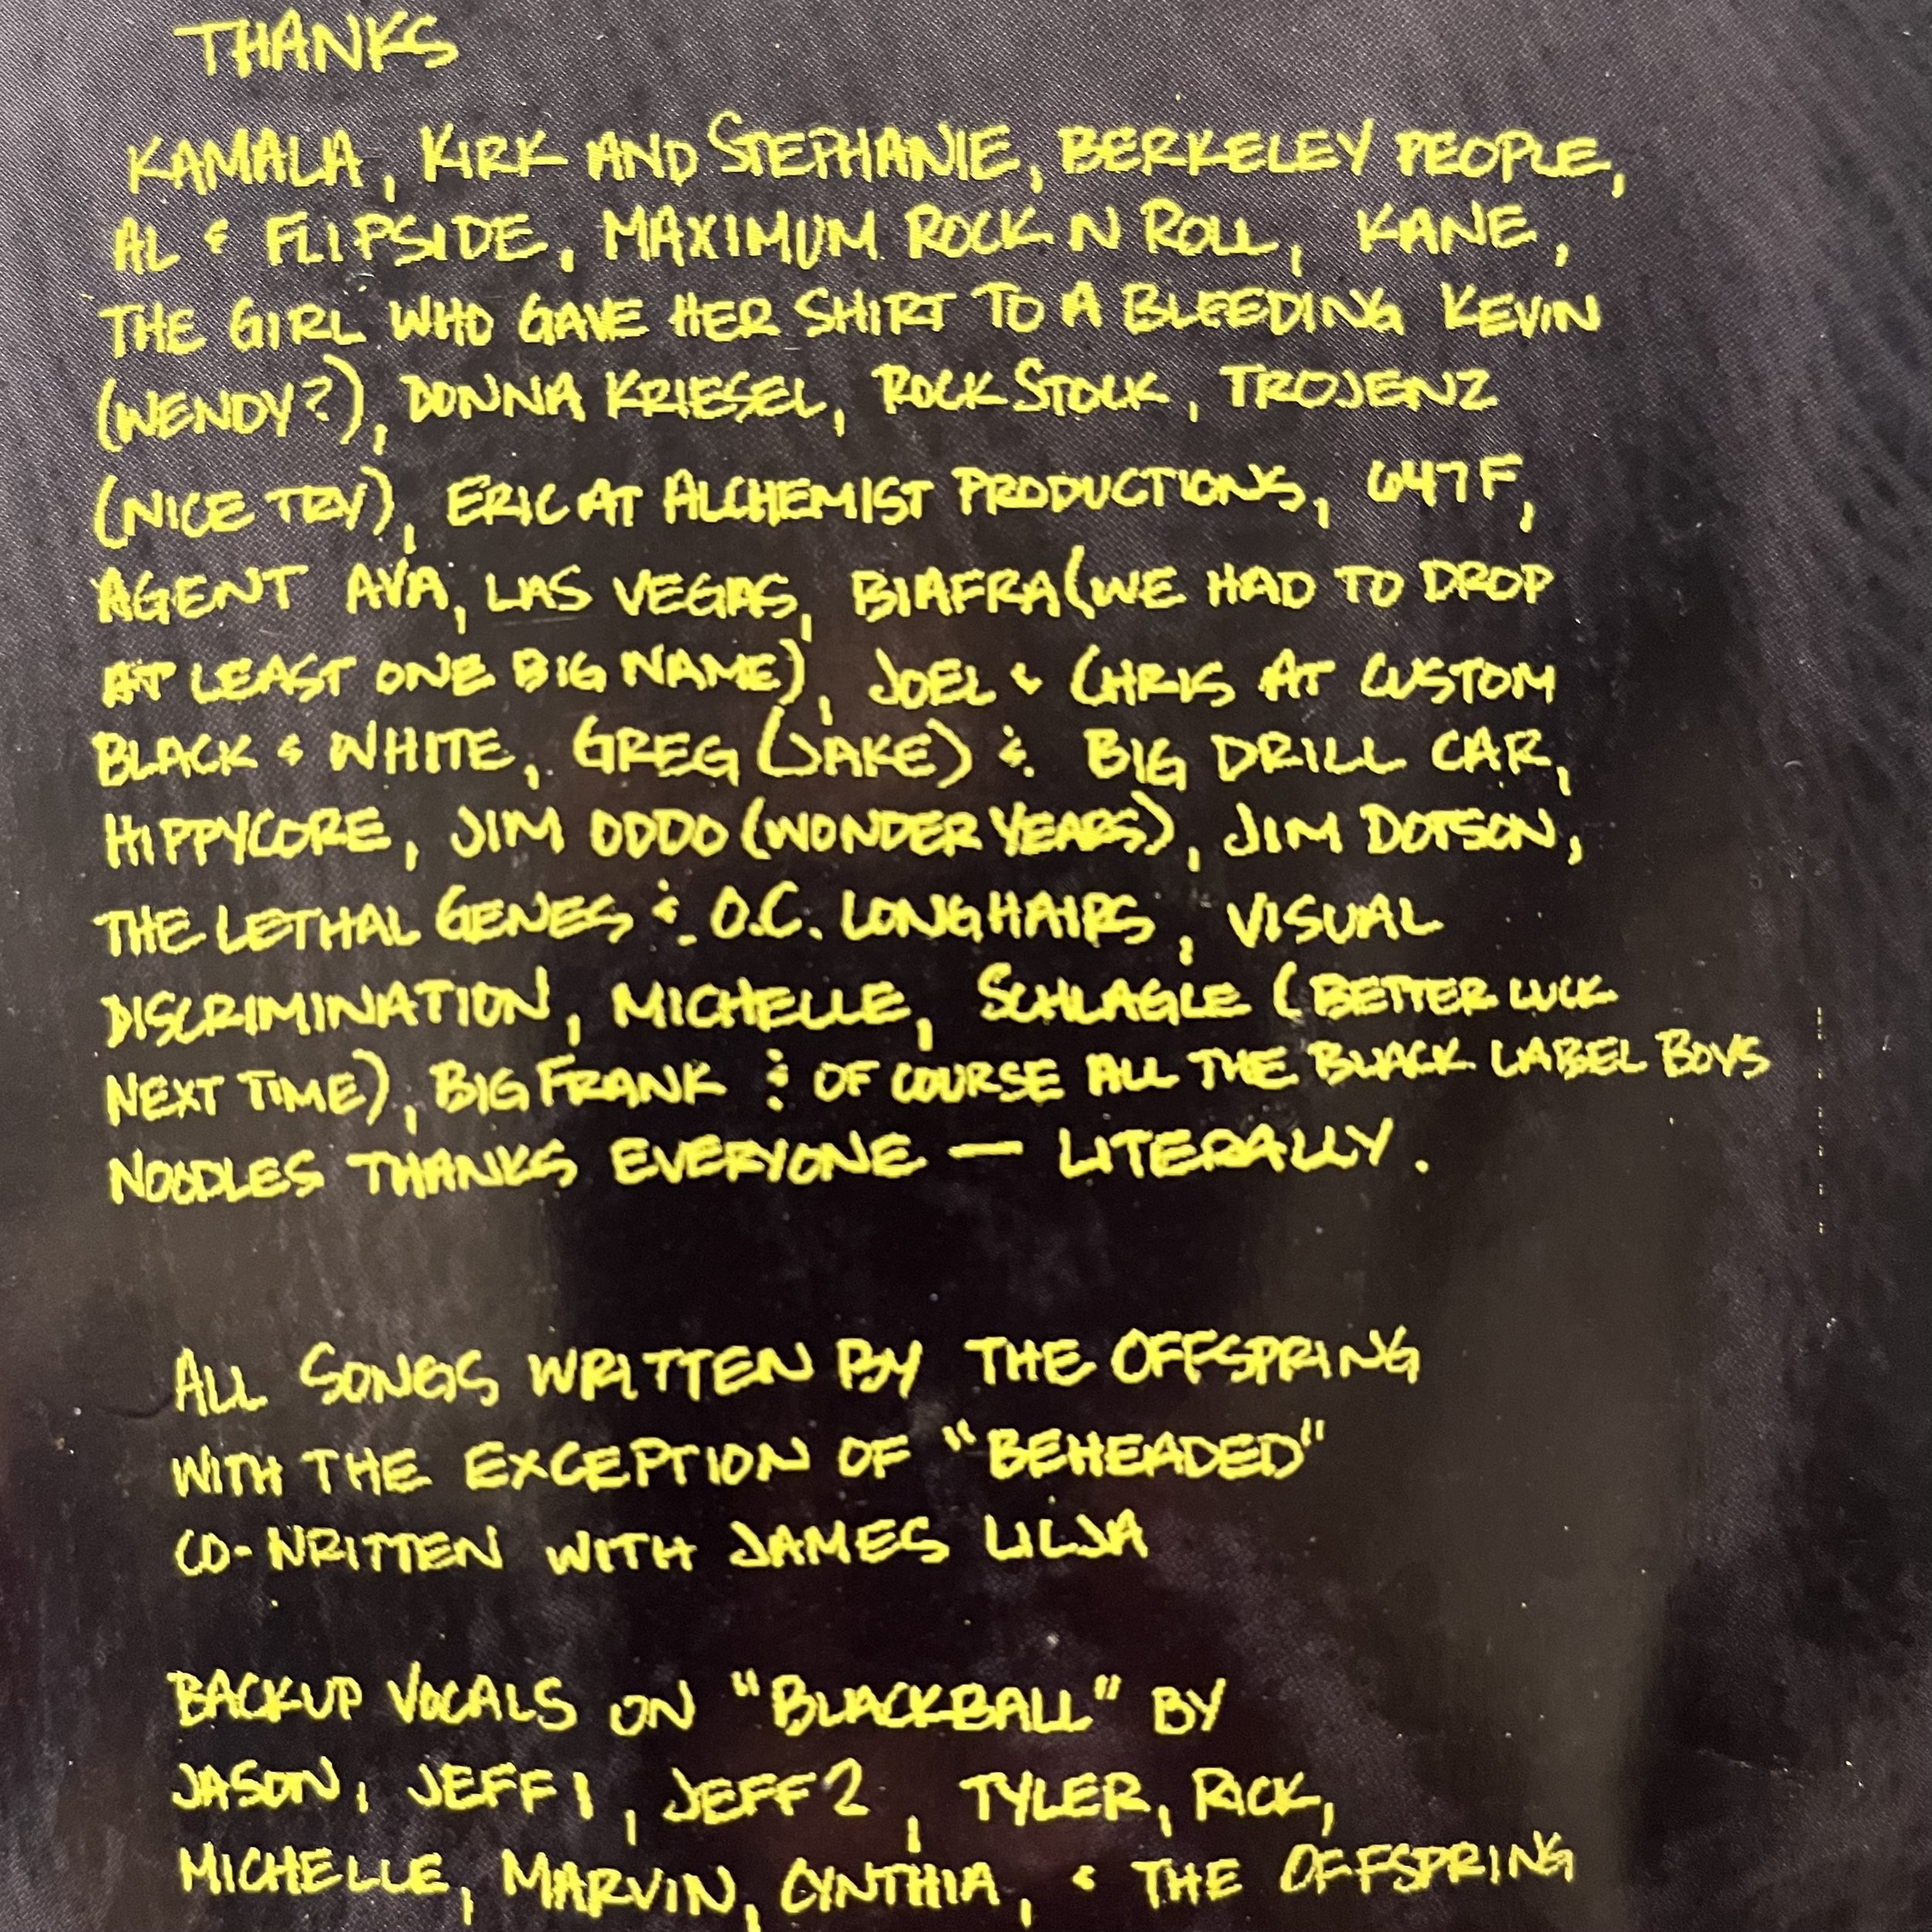 THANKS
KAMALA, KIRK AND STEPHANIE, BERKELEY PEOPLE,
AL & FLIPSIDE, MAXIMUM ROCK N ROLL, KANE,
THE GIRL WHO GAVE HER SHIRT TO A BLEEDING KEVIN
(WENDY?), DONNA KRIESEL, ROCK STOLK, TROJENZ
(NICE TRY), ERIC AT ALCHEMIST PRODUCTIONS, 647F,
AGENT AVA, LAS VEGAS, BIAFRA (WE HAD TO DROP
AT LEAST ONE BIG NAME), JOEL & CHRIS AT CUSTOM
BLACK & WHITE, GREG (JAKE) & BIG DRILL CAR,
HIPPYCORE, JIM ODDO (WONDER YEARS), JIM DOTSON,
THE LETHAL GENES & O.C. LONGHAIRS, VISUAL
DISCRIMINATION, MICHELLE, SCHLAGLE (BETTER LUCK
NEXT TIME), BIG FRANK & OF COURSE ALL THE BLACK LABEL BOYS
NOODLES THANKS EVERYONE — LITERALLY.
ALL SONGS WRITTEN BY THE OFFSPRING
WITH THE EXCEPTION OF "BEHEADED"
CO-WRITTEN WITH JAMES LILJA
BACKUP VOCALS ON "BLACKBALL" BY
JASON, JEFF 1, JEFF 2, TYLER, RICK,
MICHELLE, MARVIN, CYNTHIA, & THE OFFSPRING